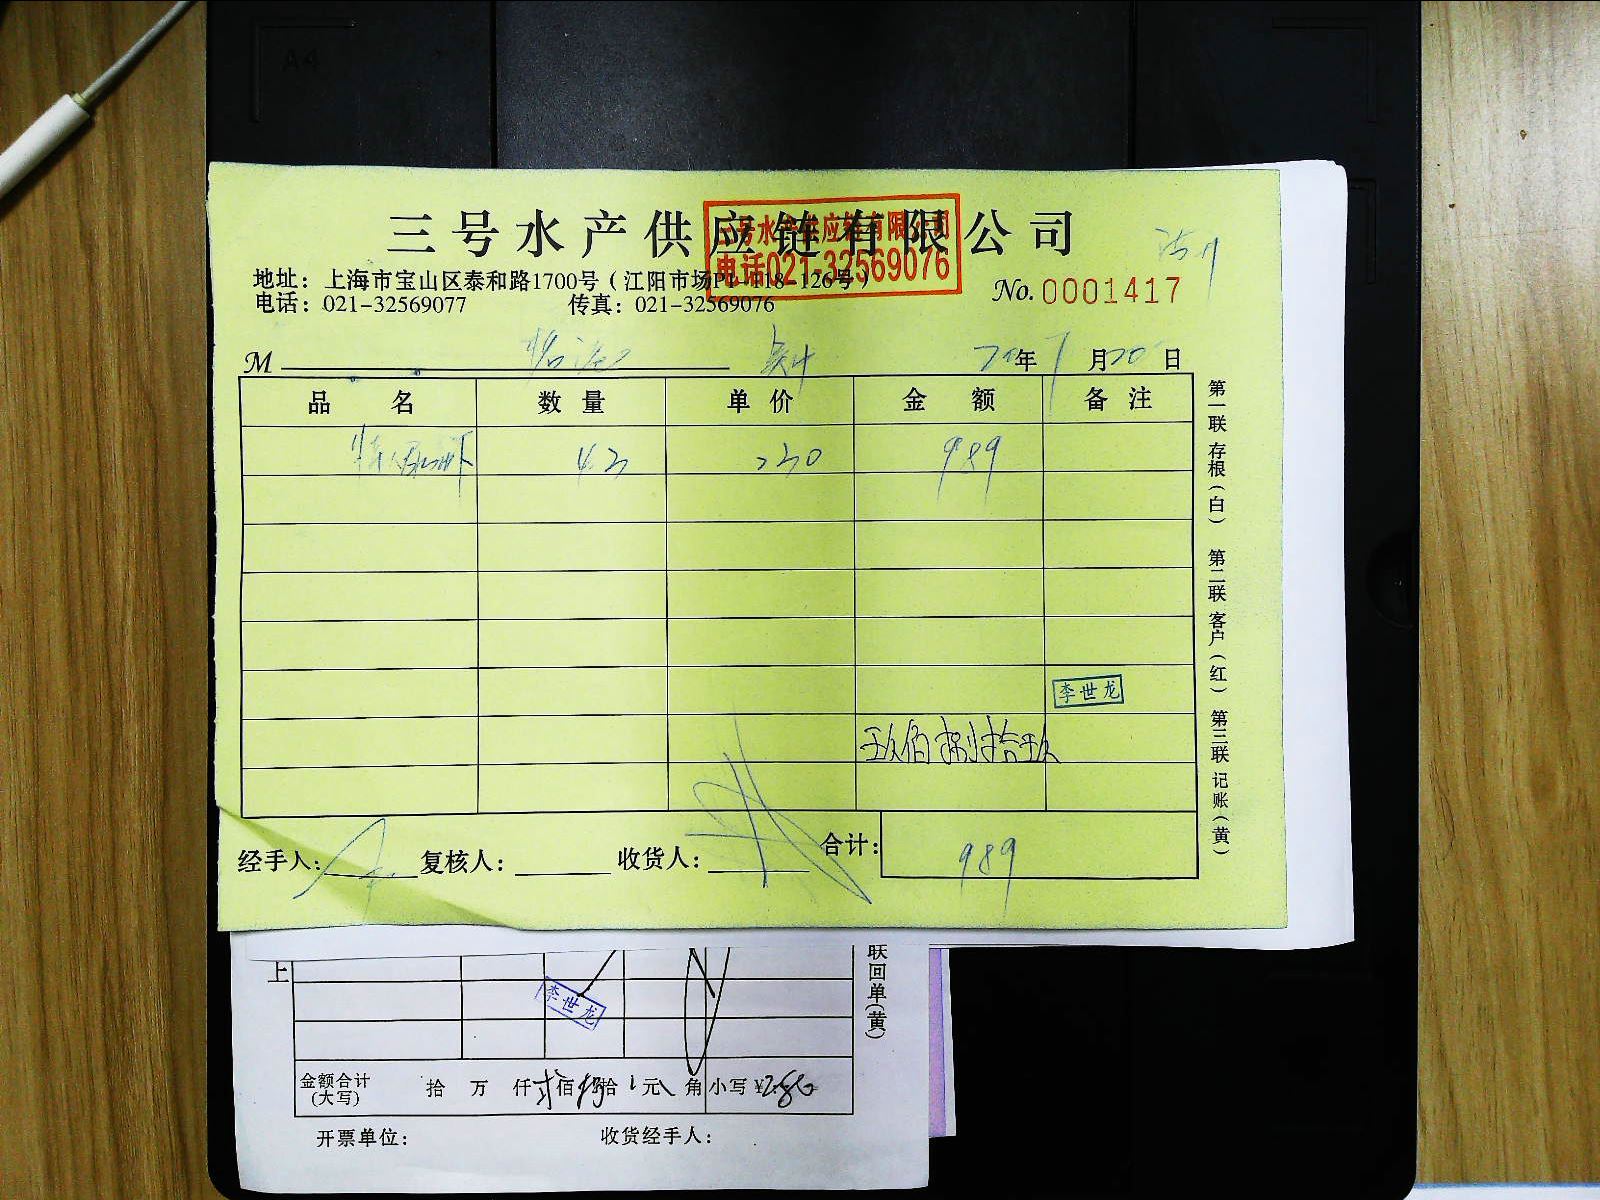 A4
三号水产供应链有限公司
三号水产供应链有限公司
电话021-32569076
地址：上海市宝山区泰和路1700号（江阳市场P1-118-126号）
电话：021-32569077 传真：021-32569076
No.0001417
M 年 月20日
品名 数量 单价 金额 备注
43 230 989
李世龙
玖佰捌拾玖
经手人： 复核人： 收货人： 合计： 989
第一联存根（白） 第二联客户（红） 第三联记账（黄）
上
联回单(黄)
李世龙
金额合计(大写) 拾 万 仟 贰佰 捌拾 元 角 小写¥286
开票单位： 收货经手人：